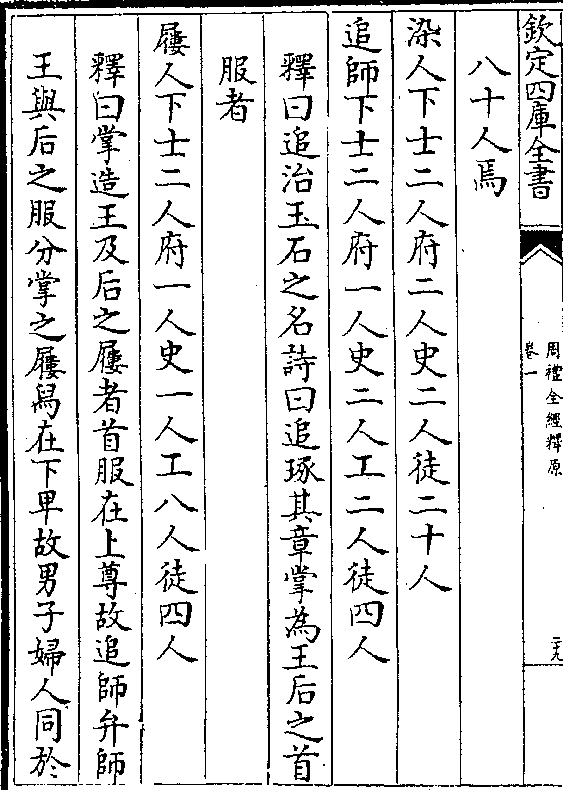 欽定四庫全書
周禮全經釋原
卷一
二十九
八十人焉
染人下士二人府二人史二人徒二十人
追師下士二人府一人史二人工二人徒四人
釋曰追治玉石之名詩曰追琢其章掌為王后之首
服者
屨人下士二人府一人史一人工八人徒四人
釋曰掌造王及后之屨者首服在上尊故追師弁師
王與后之服分掌之屨舄在下卑故男子婦人同於